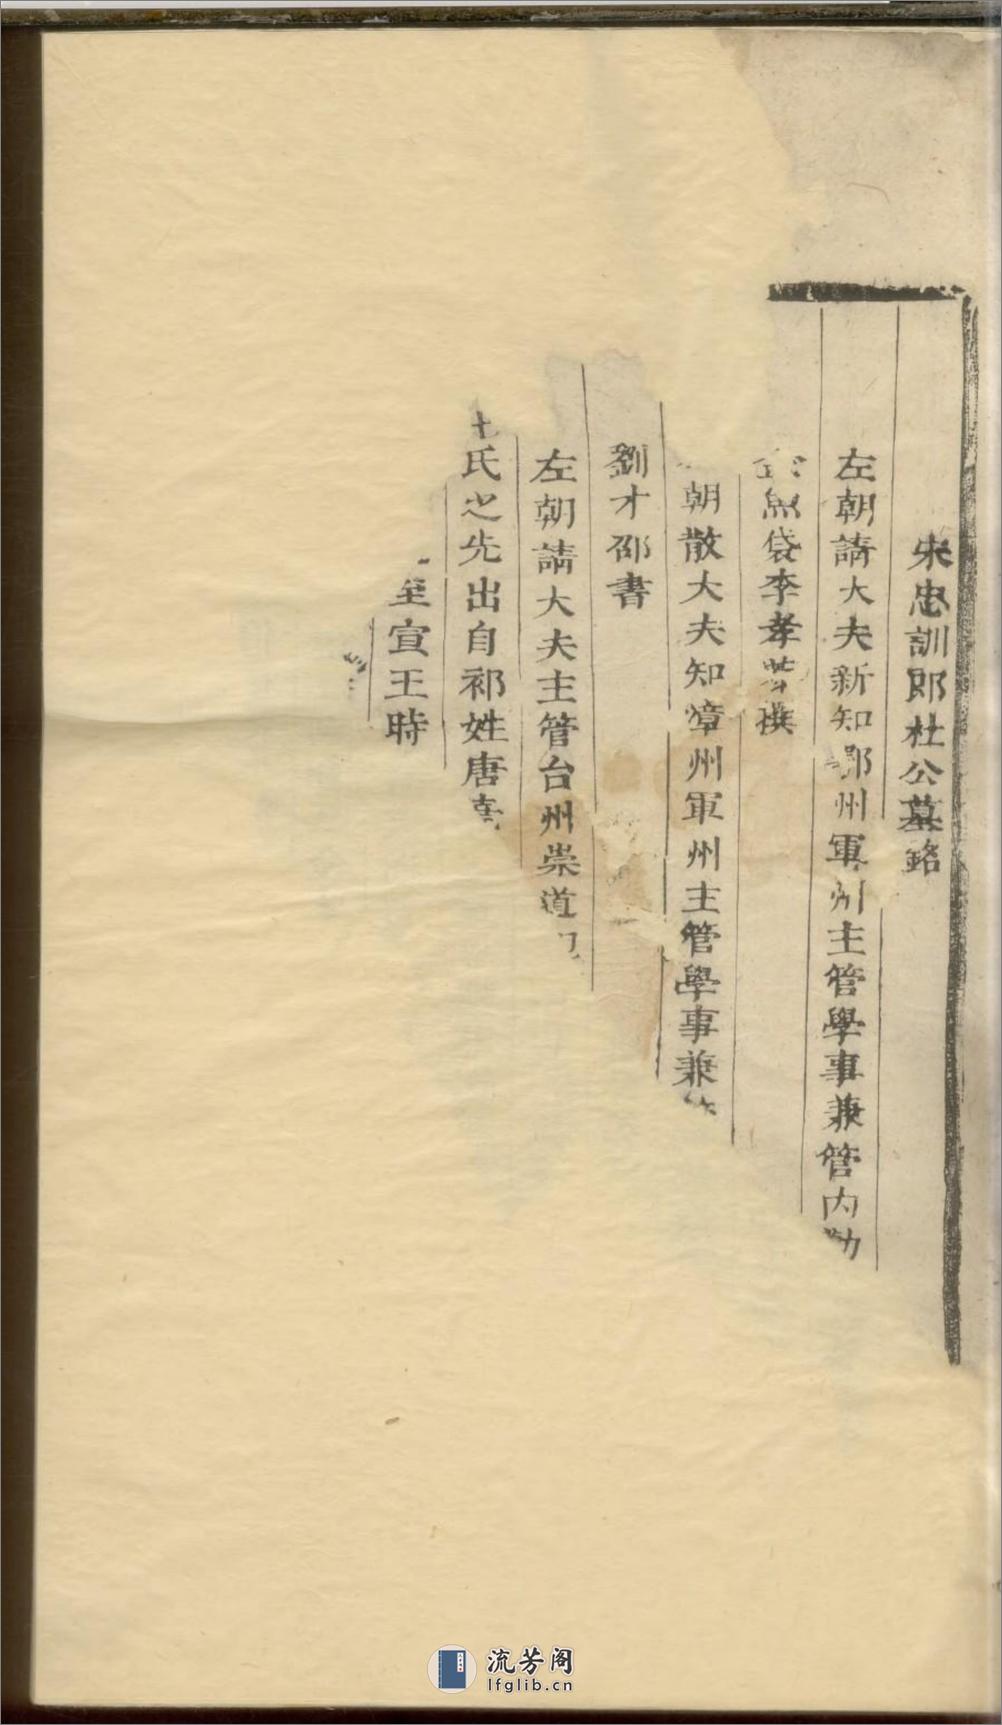 宋忠訓郎杜公墓銘
左朝請大夫新知鄂州軍州主管學事兼管內勸
魚袋李孝恭撰
朝散大夫知漳州軍州主管學事兼
劉才邵書
左朝請大夫主管台州崇道
氏之先出自祁姓唐
至宣王時
流芳阁
lfglib.cn